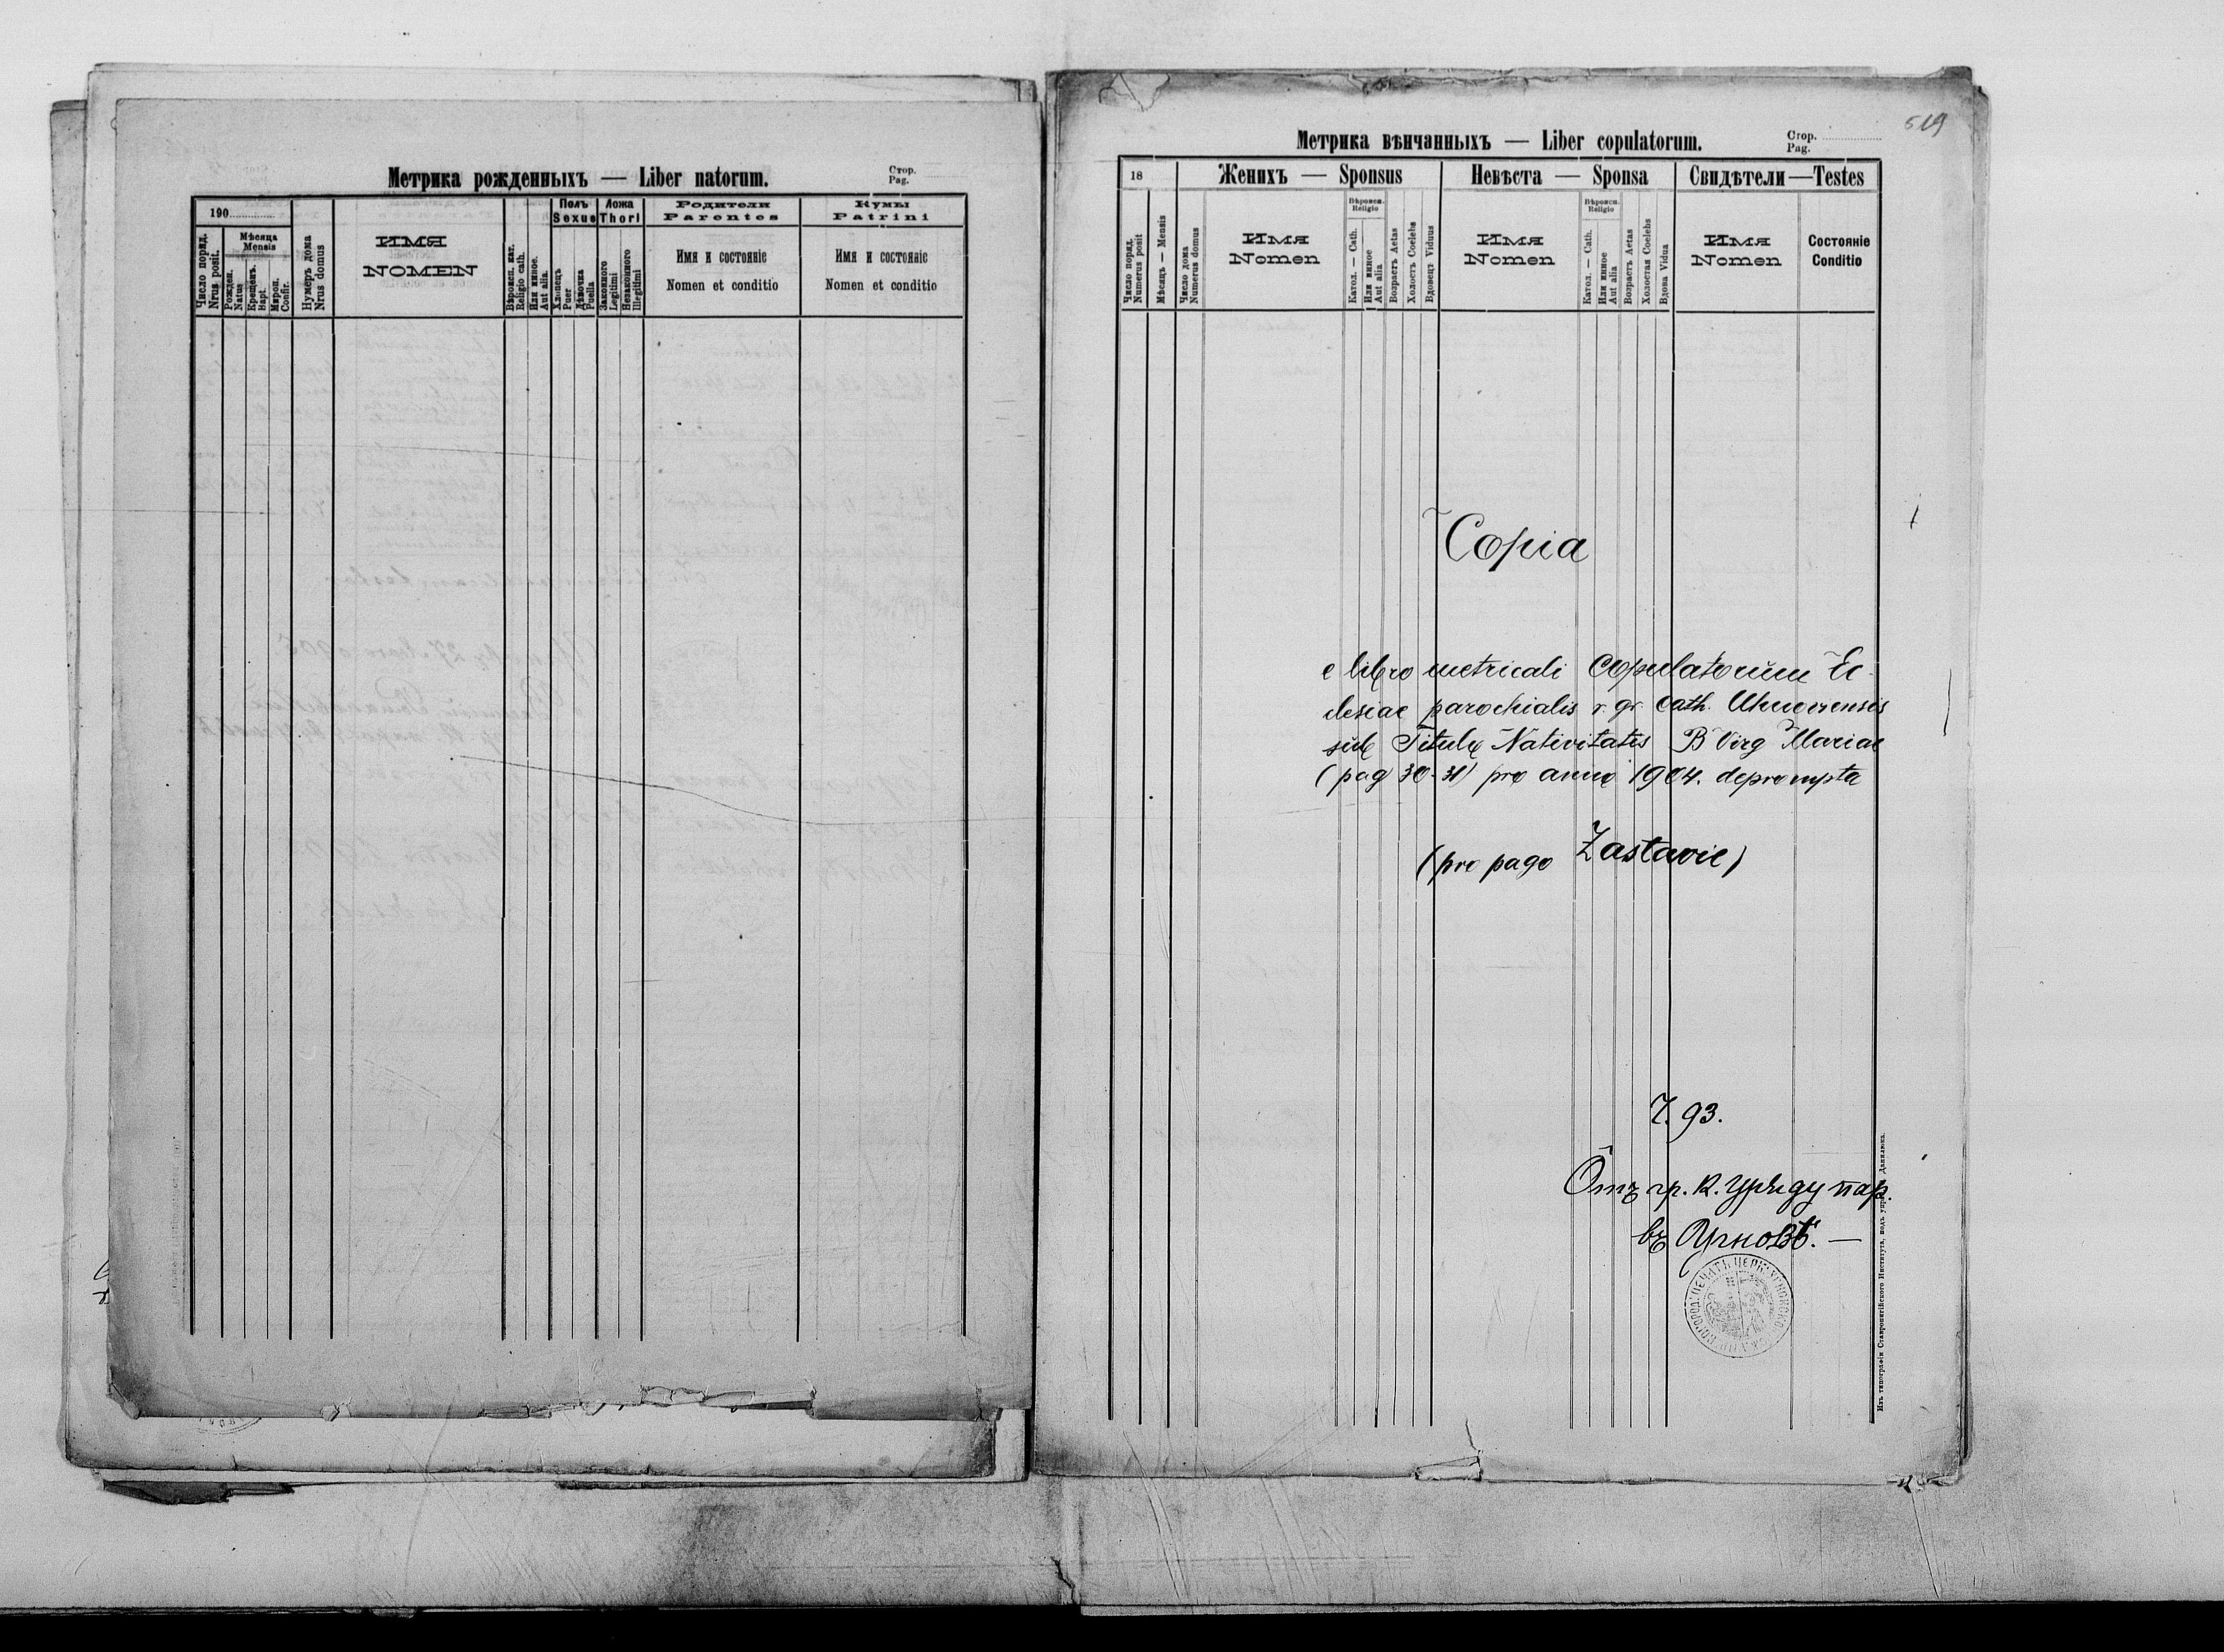 Метрика рожденныхъ — Liber natorum.
Стор.
Pag.
190
Число поряд.
Nrus posit.
Мѣсяца
Mensis
Рожден.
Natus
Крещенъ.
Bapt.
Мироп.
Confir.
Нумеръ дома
Nrus domus
ИМЯ
NOMEN
Вѣроисп. кат.
Religio cath.
Или иное.
Aut alia.
Полъ
Sexus
Хлопецъ
Puer
Дѣвочка
Puella
Ложа
Thori
Законного
Legitimi
Незаконного
Illegitimi
Родители
Parentes
Имя и состоянiе
Nomen et conditio
Кумы
Patrini
Имя и состоянiе
Nomen et conditio
519
Метрика вѣнчанныхъ — Liber copulatorum.
Стор.
Pag.
18
Число поряд.
Numerus posit
Мѣсяцъ — Mensis
Число дома
Numerus domus
Женихъ — Sponsus
Имя
Nomen
Вѣроисп.
Religio
Катол. — Cath.
Или инное
Aut alia
Возрастъ Aetas
Холостъ Coelebs
Вдовецъ Viduus
Невѣста — Sponsa
Имя
Nomen
Вѣроисп.
Religio
Катол. — Cath.
Или инное
Aut alia
Возрастъ Aetas
Холостая Coelebs
Вдова Vidua
Свидѣтели—Testes
Имя
Nomen
Состоянiе
Conditio
Copia
e libro metricali Copulatorum Ec
clesiae parochialis r. gr. cath. Uhnoviensis
sub Titulo Nativitatis B Virg Mariae
(pag 30-31) pro anno 1904. deprompta
(pro pago Zastavie)
Ч. 93.
Отъ гр. к. уряду пар.
въ Угновѣ. —
Изъ типографiи Ставропигiйского Института, подъ упр. Данилюка.